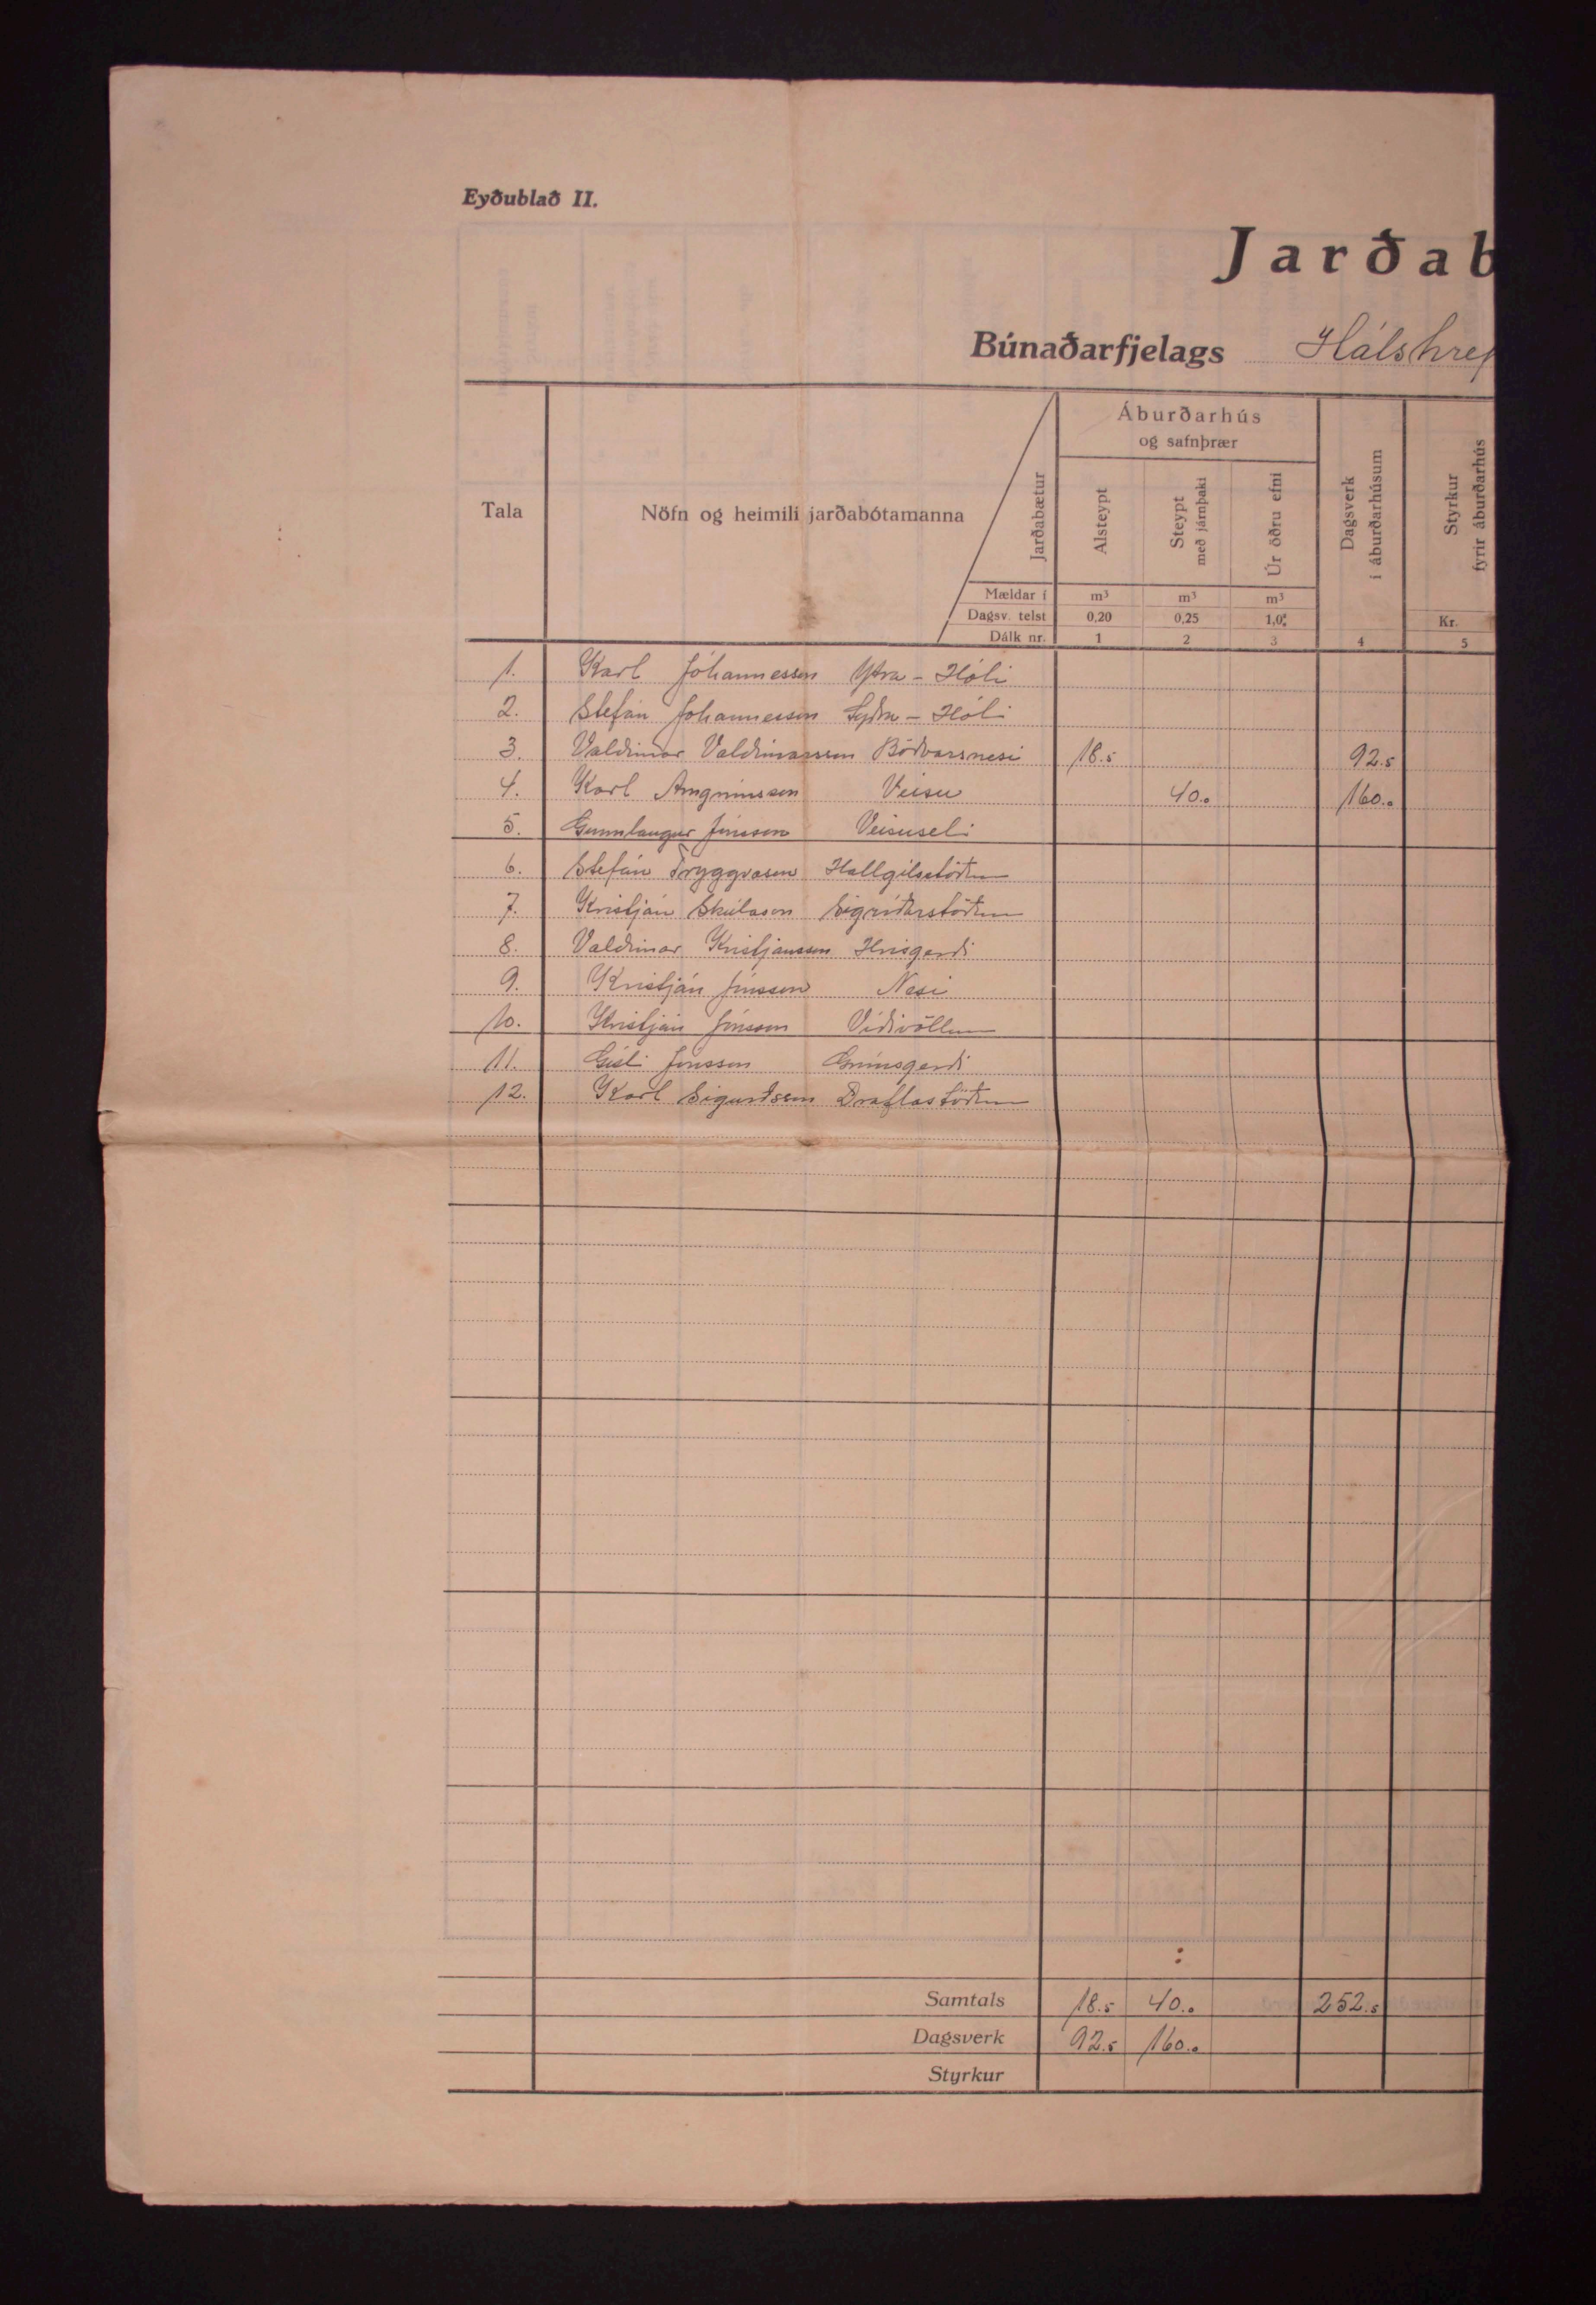 Eyðublað II.
Jarðab
Búnaðarfjelags Hálshrep
Tala
Nöfn og heimili jarðabótamanna
Jarðabætur
Áburðarhús
og safnþrær
Alsteypt
Steypt
með járnþaki
Úr öðru efni
Dagsverk
í áburðarhúsum
Styrkur
fyrir áburðarhús
Mældar í m³ m³ m³
Dagsv. telst 0,20 0,25 1,0 Kr.
Dálk nr. 1 2 3 4 5
1. Karl Jóhannesson Ytra-Hóli
2. Stefán Jóhannesson Syðra-Hóli
3. Valdimar Valdimarsson Böðvarsnesi 18.5 92.5
4. Karl Arngrímsson Veisu 40.0 160.0
5. Gunnlaugur Jónsson Veisuseli
6. Stefán Tryggvason Hallgilsstöðum
7. Kristján Skúlason Sigríðarstöðum
8. Valdimar Kristjánsson Hrísgerði
9. Kristján Jónsson Nesi
10. Kristján Jónsson Víðivöllum
11. Gísli Jónsson Grímsgerði
12. Karl Sigurðsson Draflastöðum
Samtals 18.5 40.0 252.5
Dagsverk 92.5 160.0
Styrkur